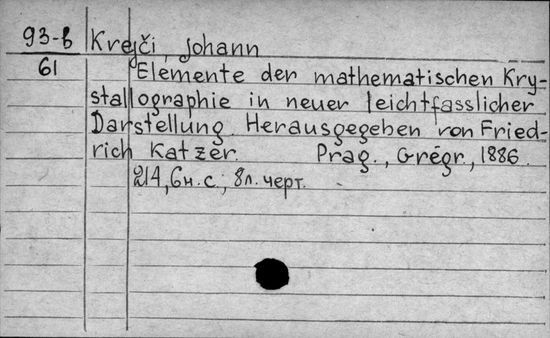 93-b Krejči, Johann
61 Elemente der mathematischen Kry-
stallographie in neuer leichtfasslicher
Darstellung. Herausgegeben von Fried-
rich Katzer. Prag., Grégr., 1886.
214, 6н.с., 8л. черт.